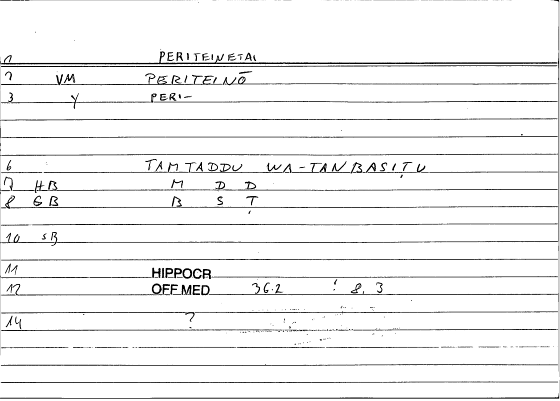 1 PERITEINETAI
2 VM PERITEINŌ
3 Y PERI-
6 TAMTADDU WA-TANBASIṬU
7 HB M D D
8 GB B S Ṭ
10 SB
11 HIPPOCR
12 OFF MED 36.2 : 8, 3
14 ?